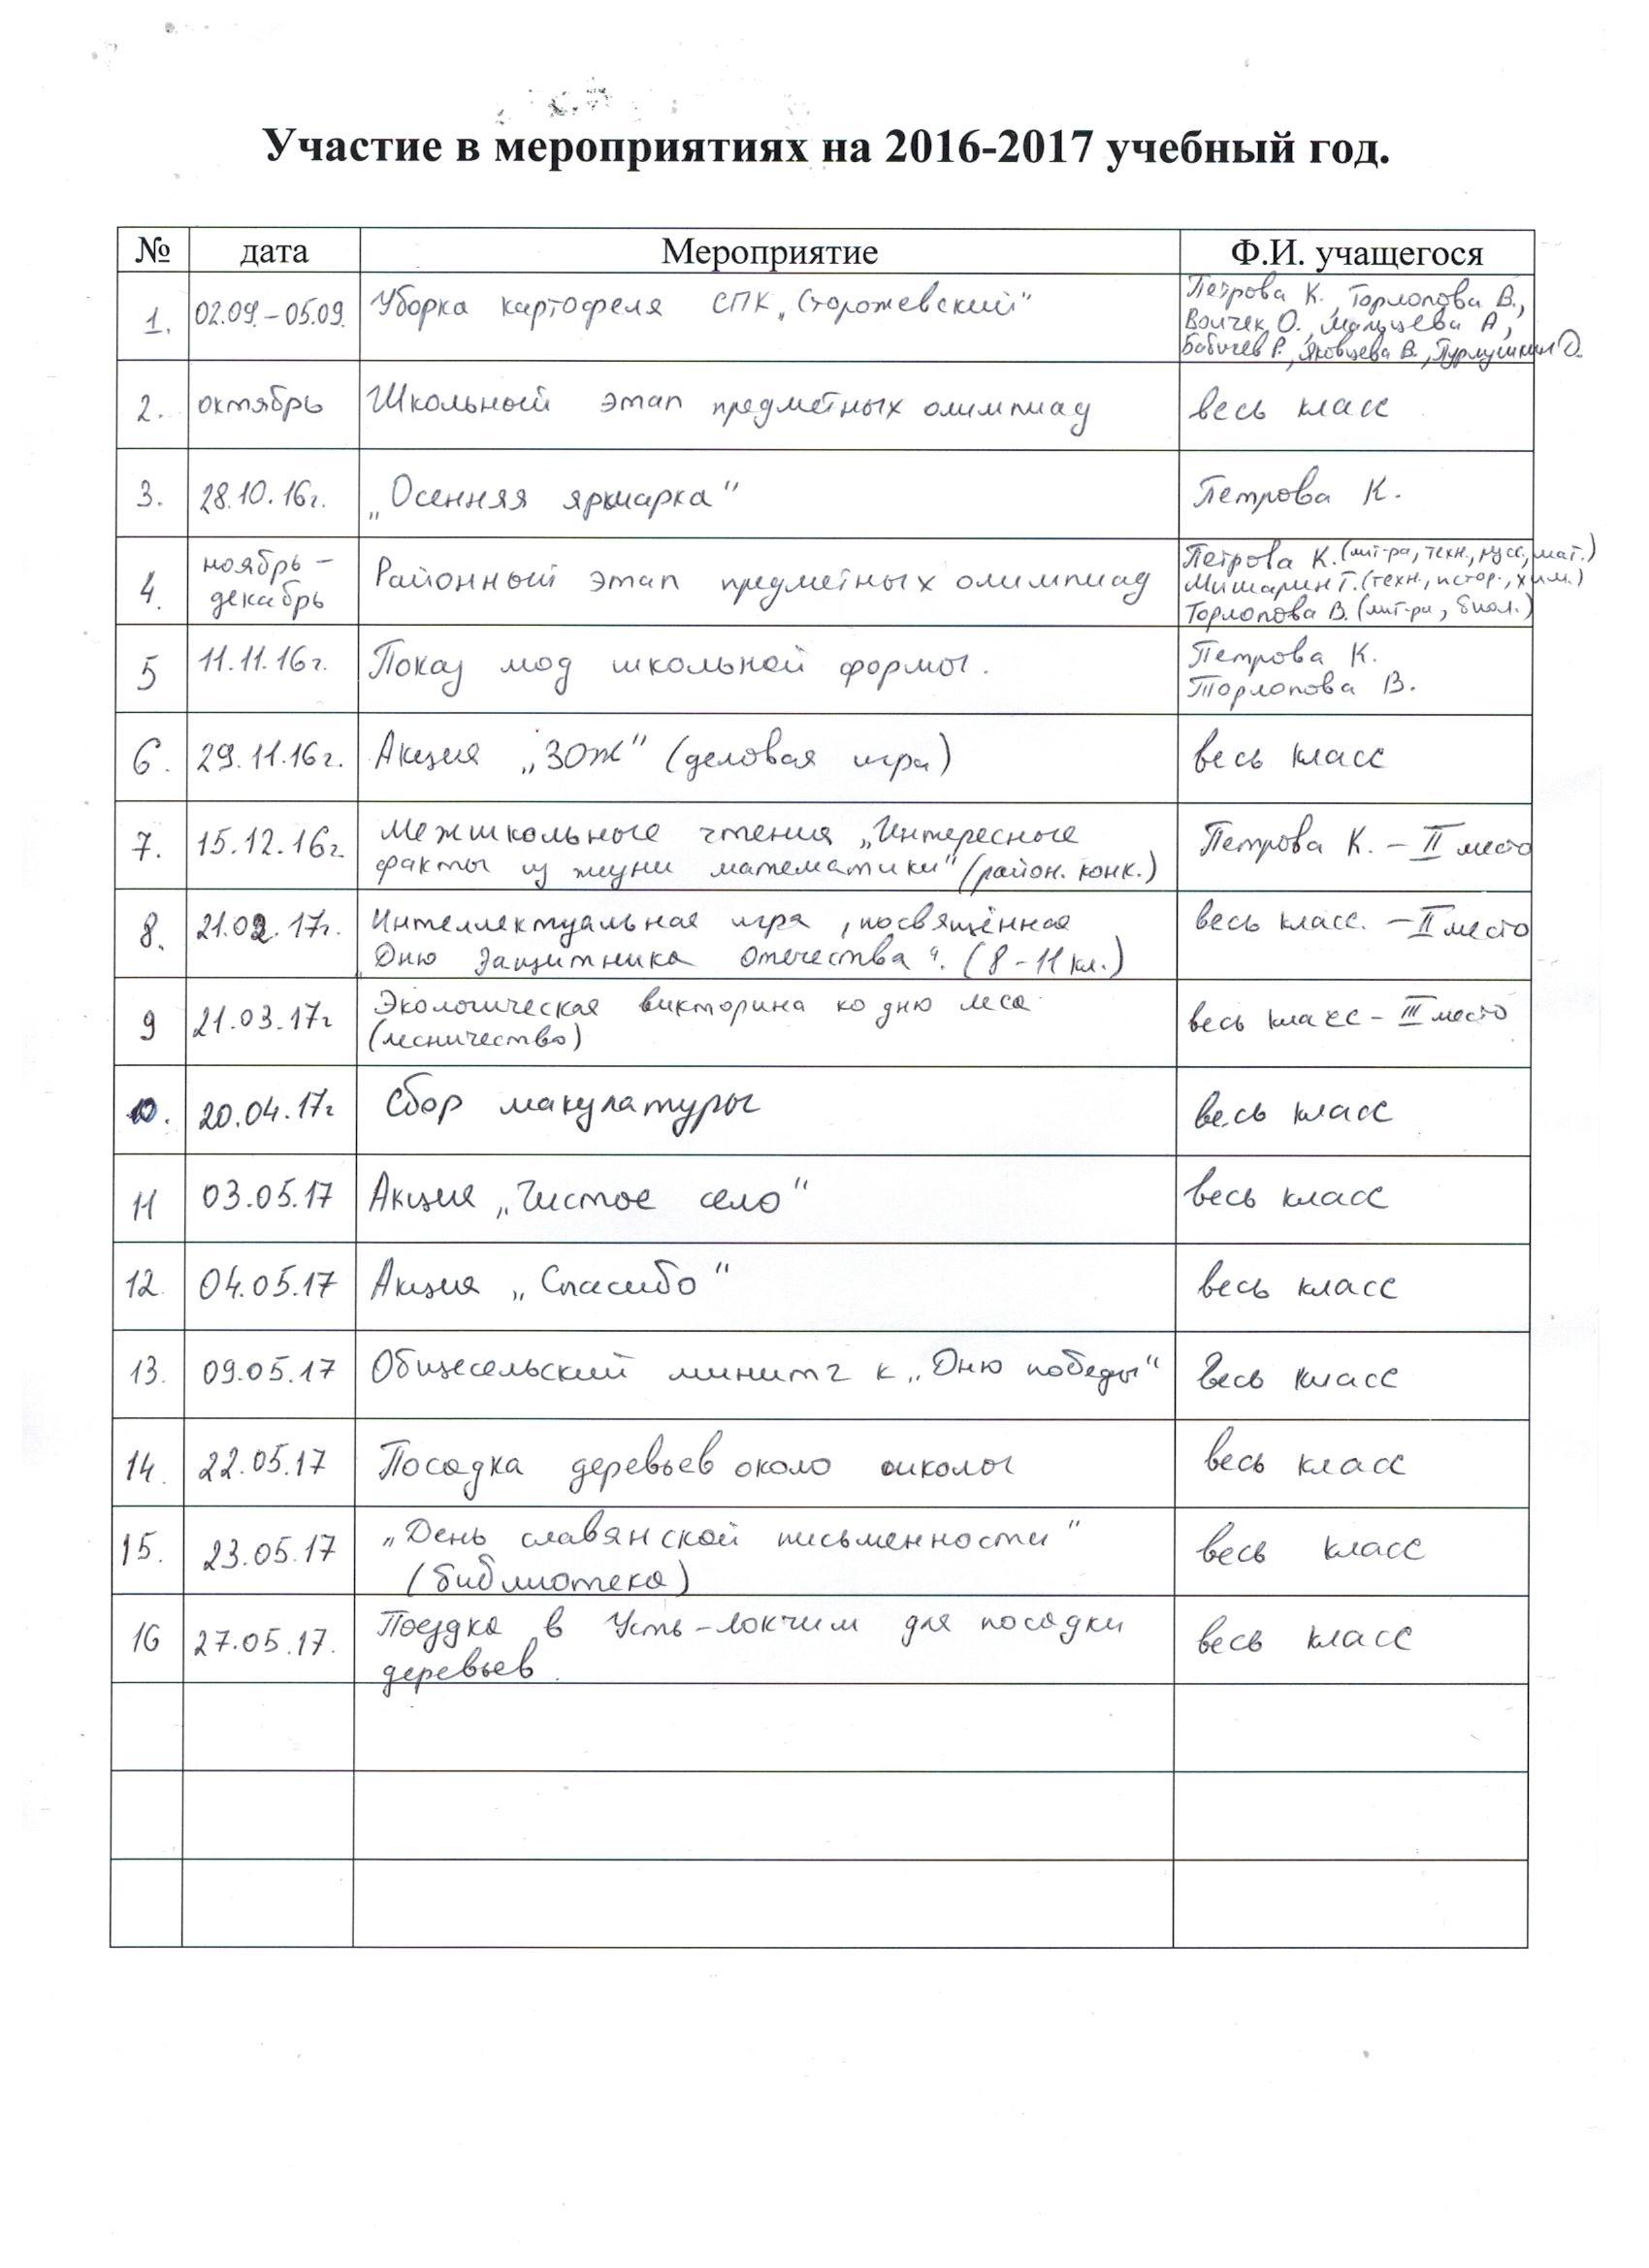 Участие в мероприятиях на 2016-2017 учебный год.
№ дата Мероприятие Ф.И. учащегося
1. 02.09.-05.09. Уборка картофеля СПК „Сторожевский" Петрова К., Торлопова В.,
Волчек О., Мальцева А,
Бабичев Р., Яковцева В.,
2. октябрь Школьный этап предметных олимпиад весь класс
3. 28.10.16г. „Осенняя ярмарка" Петрова К.
4. ноябрь - Районный этап предметных олимпиад Петрова К. (лит-ра, техн., русс., мат.)
декабрь Мишарин Г. (техн., истор., хим.)
Торлопова В. (лит-ра, биол.)
5 11.11.16г. Показ мод школьной формы. Петрова К.
Торлопова В.
6. 29.11.16г. Акция „ЗОЖ" (деловая игра) весь класс
7. 15.12.16г. Межшкольные чтения „Интересные Петрова К. - II место
факты из жизни математики" (район. конк.)
8. 21.02.17г. Интеллектуальная игра, посвящённая весь класс. - II место
„Дню Защитника Отечества". (8-11 кл.)
9 21.03.17г Экологическая викторина ко дню леса весь класс - III место
(лесничество)
10. 20.04.17г Сбор макулатуры весь класс
11 03.05.17 Акция „Чистое село" весь класс
12. 04.05.17 Акция „Спасибо" весь класс
13. 09.05.17 Общесельский минитг к „Дню победы" весь класс
14. 22.05.17 Посадка деревьев около школы весь класс
15. 23.05.17 „День славянской письменности" весь класс
(библиотека)
16 27.05.17. Поездка в Усть-Локчим для посадки весь класс
деревьев.